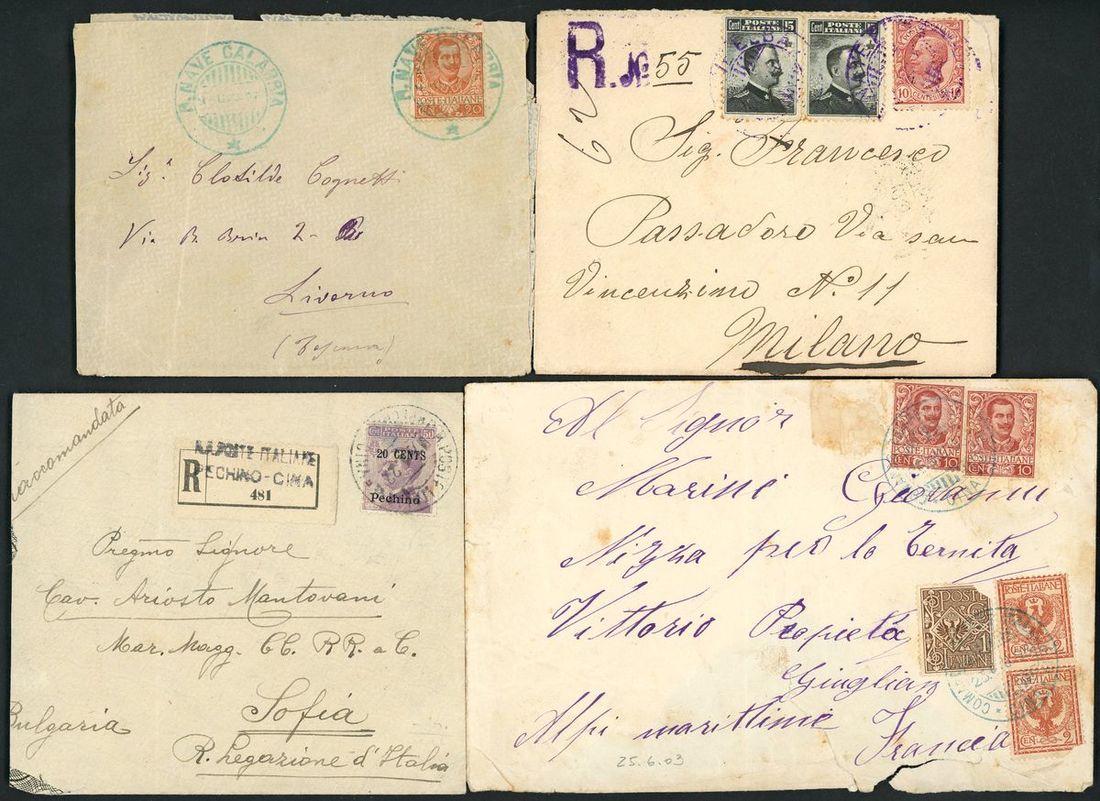 R. NAVE CALABRIA
R. NAVE CALABRIA
POSTE ITALIANE
20
Sig.ª Clotilde Cognetti
Via B. Brin 2-
Livorno
R. № 55
62
Cent POSTE ITALIANE 15
Cent POSTE ITALIANE 15
10
Sig. Francesco
Passadoro Via san
Vincenzino No. 11
Milano
Raccomandata
R.R. POSTE ITALIANE
R PECHINO-CINA
481
50
20 CENTS
Pechino
Pregmo Signore
Cav. Ariosto Mantovani
Mar. Magg. CC. RR. a C.
Sofia
Bulgaria
R. Legazione d'Italia
POSTE ITALIANE
CEN. 10
POSTE ITALIANE
CEN. 10
Al Signor
Marini Giovanni
Nizza per la Ternita
Vittorio Propietà
Giuglian
Alpi marittime
Francea
POSTE
1
ITALIANE
POSTE ITALIANE
CEN. 2
POSTE ITALIANE
CEN. 2
25.6.03